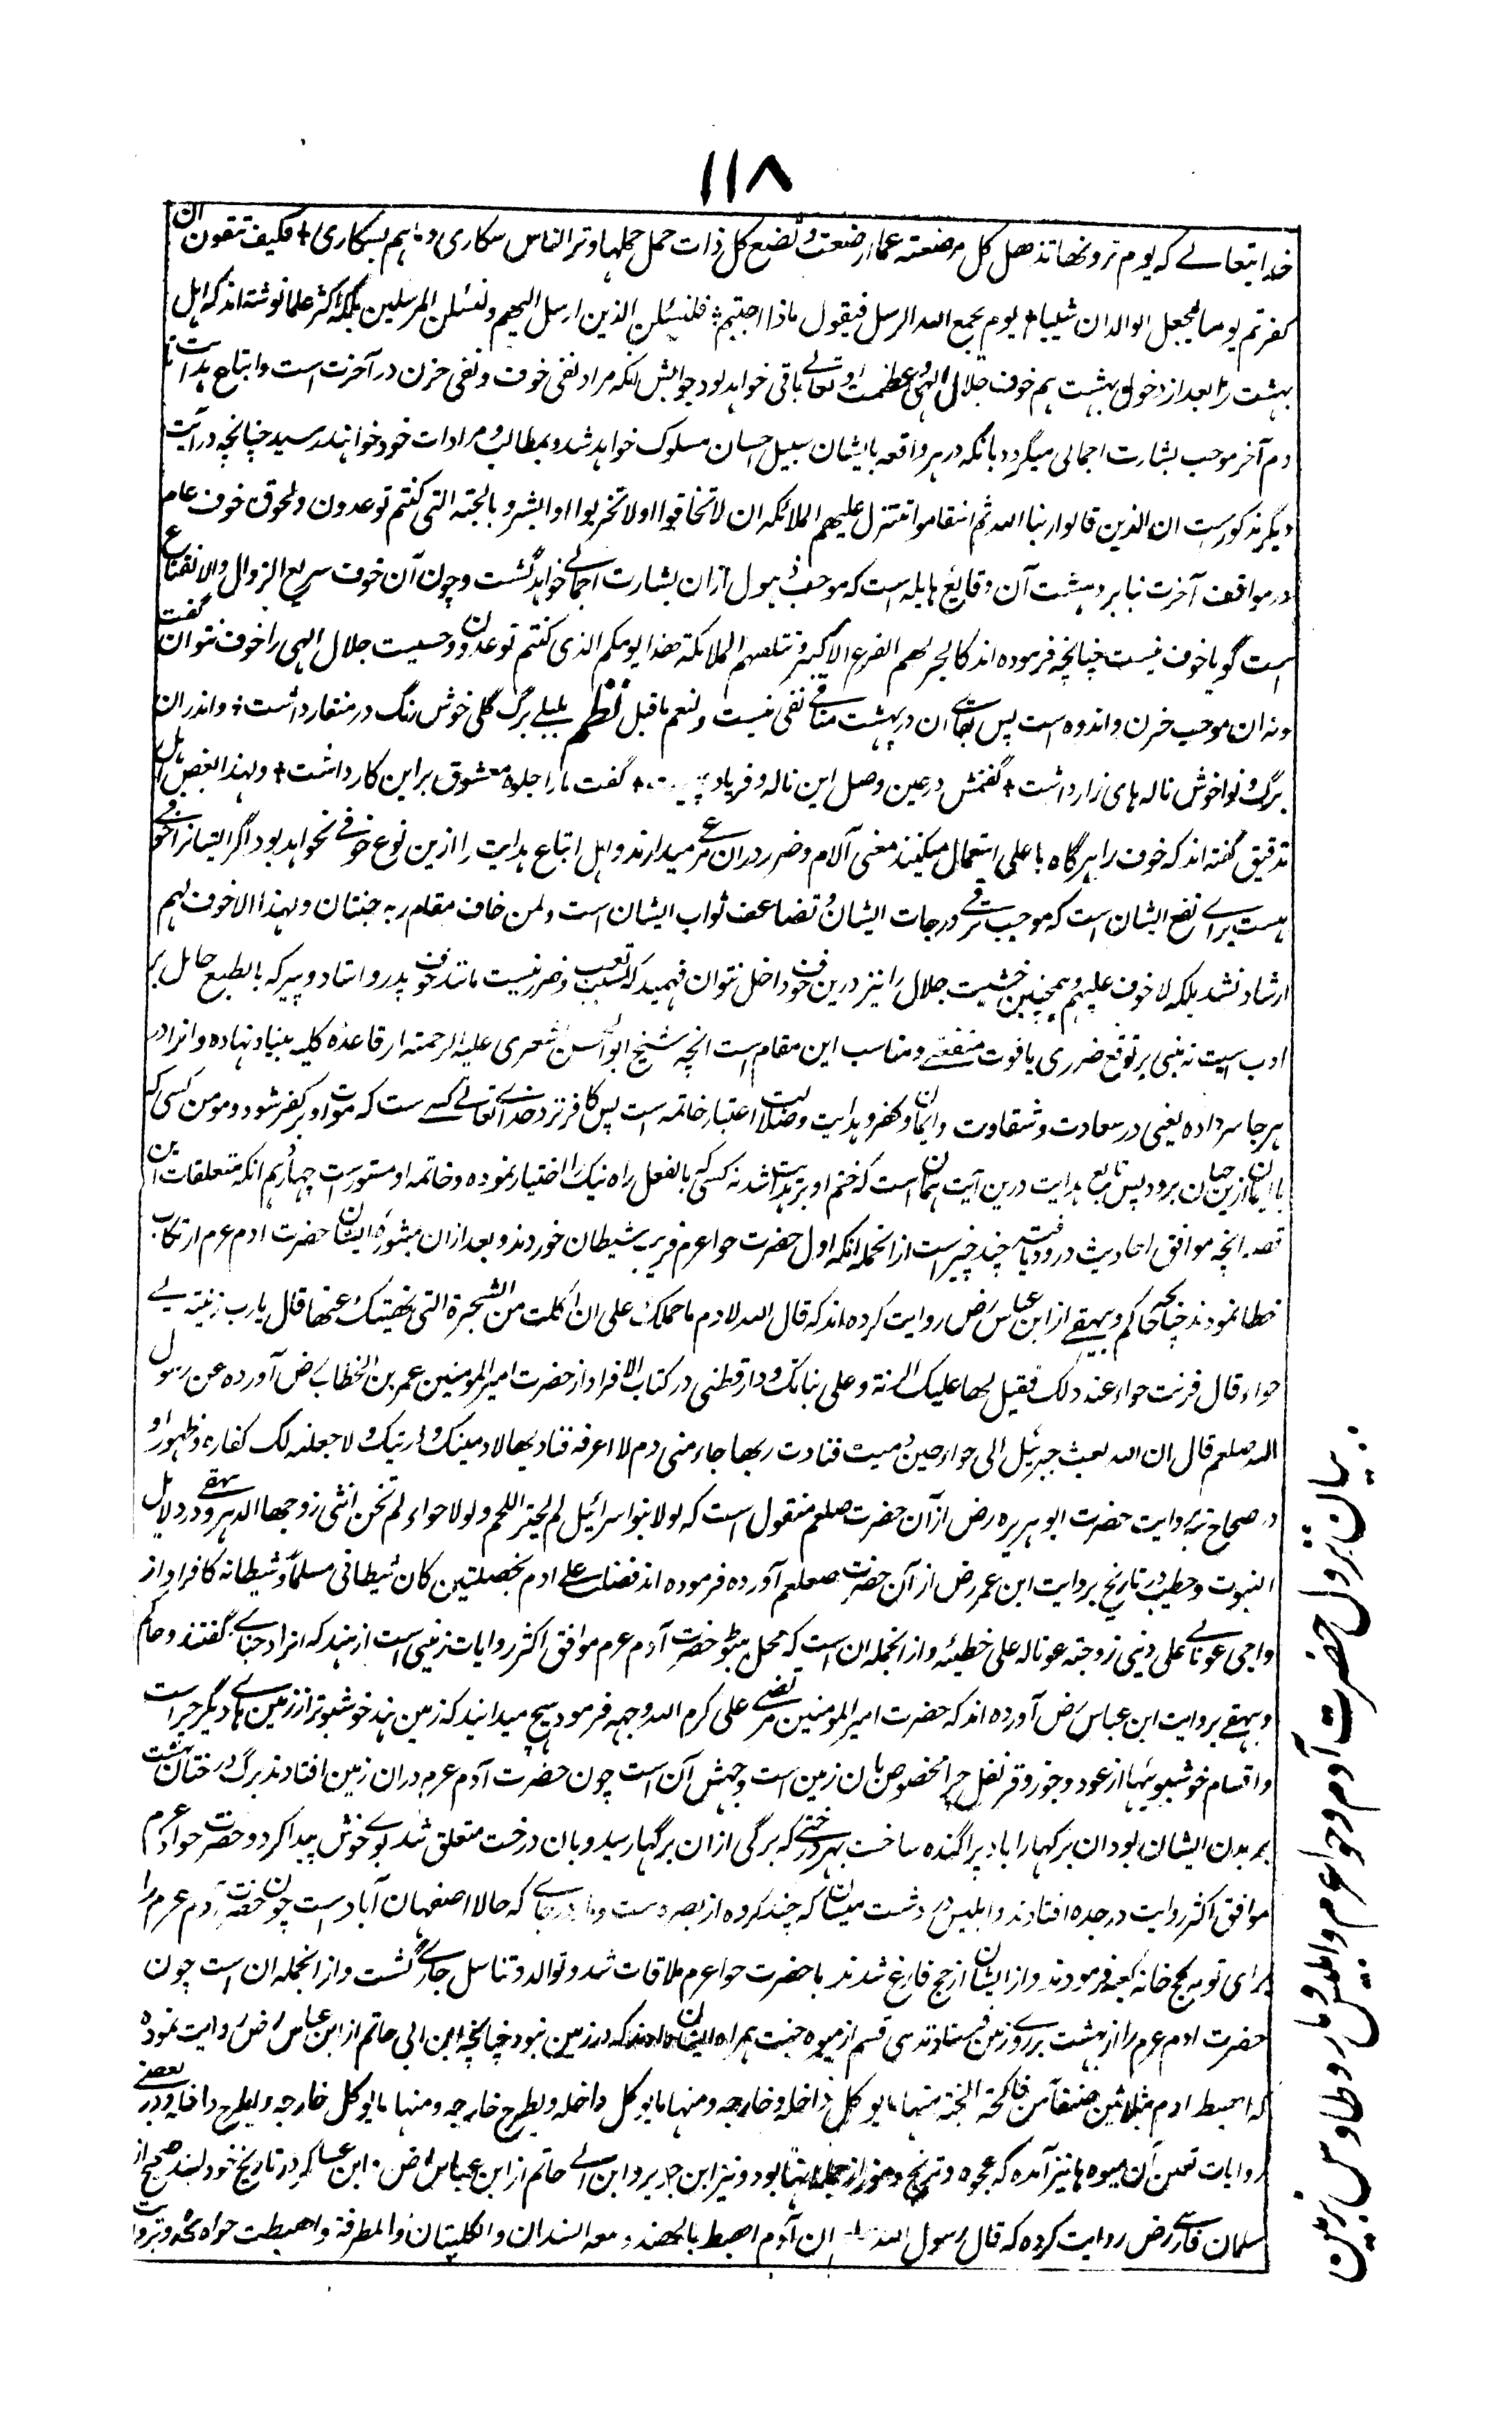 ۱۱۸
خدایتعالے که یوم ترونها تذهل کل مرضعته عما ارضعت و تضع کل ذات حمل حملها و ترالناس سکاری و ماهم بسکاری + فکیف تتقون ان
کفرتم یوما یجعل الوالدان شیبا + یوم یجمع الله الرسل فیقول ماذا اجبتم فلنسئلن الذین ارسل الیهم ولنسئلن المرسلین بلکه اکثر علما نوشته اند که اهل
بهشت را بعد از دخول بهشت هم خوف جلال الهی و عظمت او تعالے باقی خواهد بود جوابش انکه مراد نفی خوف و نفی حزن در آخرت است و اتباع هدایت تا
دم آخر موجب بشارت اجمالی میگردد بانکه در هر واقعه با ایشان سبیل احسان مسلوک خواهد شد و بمطالب و مرادات خود خواهند رسید چنانچه در آیت
دیگر مذکورست ان الذین قالوا ربنا الله ثم استقاموا تتنزل علیهم الملائکه ان لا تخافوا و لا تحزنوا و ابشروا بالجنته التی کنتم توعدون و لحوق خوف عام
در مواقف آخرت بنا بر دهشت آن وقایع هایله است که موجب ذهول ازان بشارت اجمالی خواهد گشت و چون آن خوف سریع الزوال والانقطاع
است گویا خوف نیست چنانچه فرموده اند که لایحزنهم الفزع الاکبر و تتلقهم الملائکته هذا یومکم الذی کنتم توعدون و خشیت جلال الهی را خوف نتوان گفت
و نه ان موجب حزن و اندوه است پس بقای ان در بهشت منافی نفی نیست و لنعم ماقیل نظم بلبلے برگ گلی خوش رنگ در منقار داشت + و اندران
برگ و نوا خوش ناله های زار داشت + گفتمش در عین وصل این ناله و فریاد چیست + گفت ما را جلوه معشوق بر این کار داشت + و لهذا بعض اهل
تدقیق گفته اند که خوف را هرگاه با علی استعمال میکنند معنی آلام و ضرر دران مرعی میدارند و اهل اتباع هدایت را ازین نوع خوفے نخواهد بود اگر ایشانرا خوفی
هست برائے نفع ایشان است که موجب ترقی درجات ایشان و تضاعف ثواب ایشان است و لمن خاف مقام ربه جنتان و لهذا لا خوف لهم
ارشاد نشد بلکه لا خوف علیهم و همچنین خشیت جلال را نیز درین خوف داخل نتوان فهمید که بسبب تعب و ضرر نیست مانند خوف پدر و استاد و پیر که بالطبع حامل بر
ادب است نه مبنی بر توقع ضرری یا فوت منفعتے و مناسب این مقام است انچه شیخ ابوالحسن اشعری علیه الرحمته از قاعده کلیه بنیاد نهاده و انرا در
هرجا سر داده یعنی در سعادت و شقاوت و ایمان و کفر و هدایت و ضلالت اعتبار خاتمه است پس کافر نزد خدای تعالے کسے ست که موت او بر کفر شود و مومن کسی که
با ایمان ازین جهان برود پس تابع هدایت درین آیت همان است که ختم او بر هدایت باشد نه کسی که بالفعل راه نیک را اختیار نموده و خاتمه او مستورست چهارم انکه متعلقات این
قصه انچه موافق احادیث در ورود یافته چند چیز است از انجمله انکه اول حضرت حوا عرم فریب شیطان خوردند و بعد ازان بمشورۀ ایشان حضرت ادم عرم ارتکاب
خطا نمودند چنانچه حاکم و بیهقے از ابن عباس رض روایت کرده اند که قال الله لادم ما حملک علی ان اکلت من الشجرة التی نهیتک عنها قال یارب زینته لے
حواء قال فرنت حواء عند ذلک فقیل لها علیک الرنة و علی بناتک و دارقطنی در کتاب الافراد از حضرت امیرالمومنین عمر بن الخطاب رض آورده عن رسول
الله صلعم قال ان الله بعث جبرئیل الی حواء حین دمیت فنادت ربها جاء منی دم لا اعرفه فنادیها لادمینک و ذریتک و لاجعلنه لک کفارة و ظهورا و
در صحاح سته بروایت حضرت ابوهریره رض از آن حضرت صلعم منقول است که لولا بنو اسرائیل لم یخنز اللحم و لولا حواء لم تخن انثی زوجها الدهر و بیهقے در دلایل
النبوت و خطیب در تاریخ بروایت ابن عمر رض از آن حضرت صلعم آورده فرموده اند فضلت علے ادم بخصلتین کان شیطانی مسلما و شیطانه کافرا و از
واجی عونالے علی دینی زوجته عونا له علی خطیئه و از انجمله ان است که محل هبوط حضرت آدم عرم موافق اکثر روایات زمینی است از هند که انرا دجنای گفتند و حاکم
و بیهقے بروایت ابن عباس رض آورده اند که حضرت امیرالمومنین مرتضے علی کرم الله وجهه فرمود هیچ میدانید که زمین هند خوشبوتر از زمین های دیگر چراست
و اقسام خوشبویها از عود و جوز و قرنفل چرا مخصوص بان زمین است وجهش آن است چون حضرت آدم عرم دران زمین افتادند برگ درختان بهشت
بر بدن ایشان بود ان برگها را باد پراگنده ساخت بهر درختے که برگی ازان برگها رسید و بان درخت متعلق شد بوے خوش پیدا کرد و حضرت حوا عرم
موافق اکثر روایت در جده افتادند و ابلیس در دشت میسان که چند کروه از بصره ست و مار در جاے که حالا اصفهان آباد است چون حضرت آدم عرم را
برای توبه بحج خانه کعبه فرمودند و از ایشان از حج فارغ شدند با حضرت حوا عرم ملاقات شد و توالد و تناسل جاری گشت و از انجمله ان است چون
حضرت ادم عرم را از بهشت بر روے زمین فرستادند سی قسم از میوه جنت همراه ایشان دادند که در زمین نبود چنانچه ابن ابی حاتم از ابن عباس رض روایت نموده
که اهبط ادم بثلاثین صنفا من فاکهته الجنته منها ما یوکل داخله و خارجه و منها ما یوکل داخله و یطرح خارجه و منها ما یوکل خارجه و یطرح داخله و در بعضے
روایات تعین آن میوه ها نیز آمده که عجوه و ترنج و موز از جمله انها بود و نیز ابن جریر و ابن ابے حاتم از ابن عباس رض و ابن عساکر در تاریخ خود بسند صحیح از
سلمان فارسے رض روایت کرده که قال رسول الله صلعم ان آدم اهبط بالهند و معه السندان و الکلبتان و المطرقة و اهبطت حواء بجده و بروایت
بیان نزول حضرت آدم و حوا عرم و ابلیس و مار و طاؤس بزمین